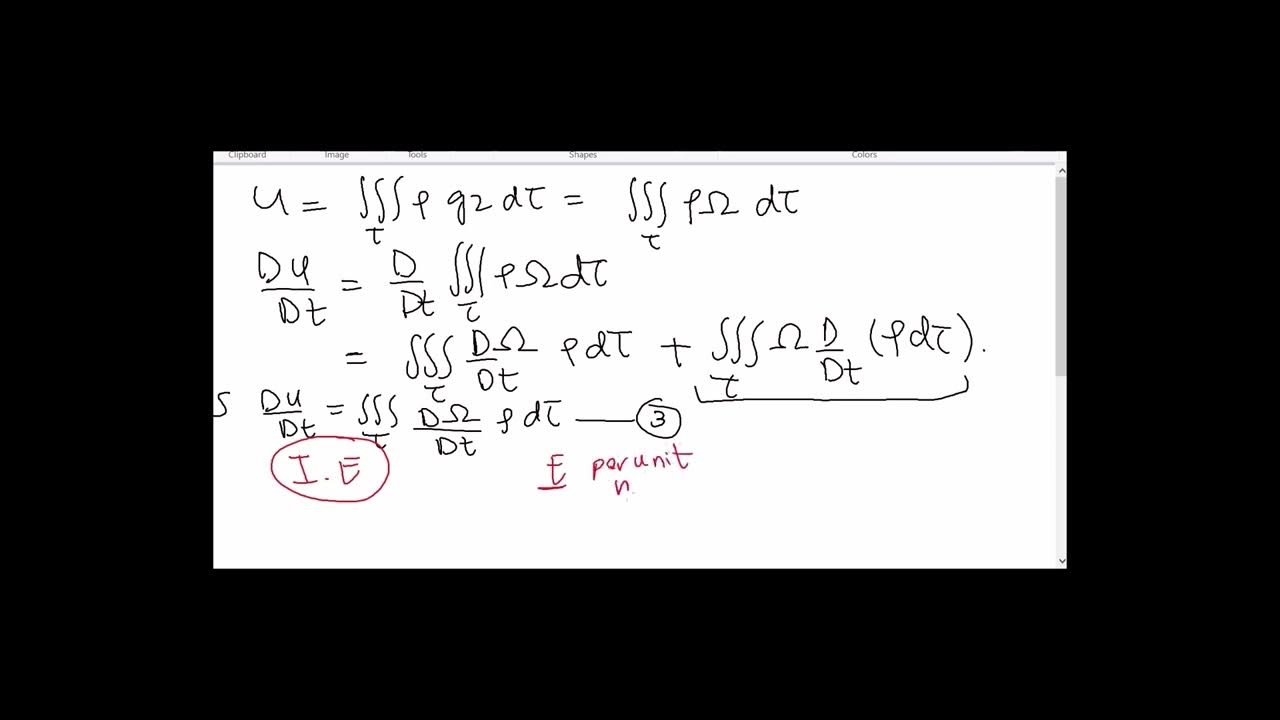 Clipboard Image Tools Shapes Colors
U = ∭_τ ρ gz dτ = ∭_τ ρΩ dτ
DU/Dt = D/Dt ∭_τ ρΩdτ
= ∭_τ DΩ/Dt ρdτ + ∭_τ Ω D/Dt (ρdτ).
S DU/Dt = ∭_τ DΩ/Dt ρdτ —— ③
I.E E per unit